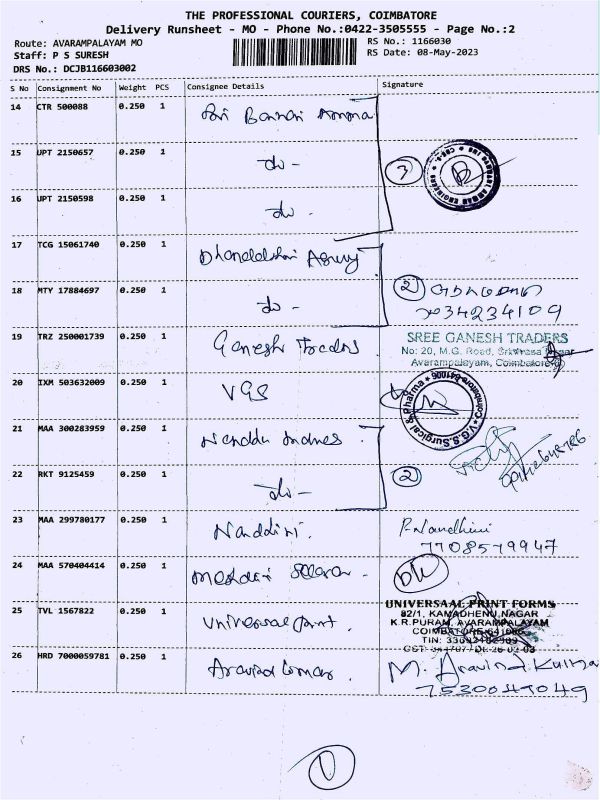 THE PROFESSIONAL COURIERS, COIMBATORE
Delivery Runsheet - MO - Phone No.:0422-3505555 - Page No.:2
Route: AVARAMPALAYAM MO
RS No.: 1166030
Staff: P S SURESH
RS Date: 08-May-2023
DRS No.: DCJB116603002
S No Consignment No Weight PCS Consignee Details Signature
14 CTR 500088 0.250 1 Sri Bannari Amma
15 UPT 2150657 0.250 1 do - 3
16 UPT 2150598 0.250 1 do -
17 TCG 15061740 0.250 1
18 MTY 17884697 0.250 1 do - 2
19 TRZ 250001739 0.250 1 Ganesh Traders
SREE GANESH TRADERS
No: 20, M.G. Road, Srinivasa Nagar
Avarampalayam, Coimbatore
20 IXM 503632009 0.250 1 VGS
V.G.S. Surgical & Pharma * Coimbatore-641006
21 MAA 300283959 0.250 1
22 RKT 9125459 0.250 1 do - 2
23 MAA 299780177 0.250 1 Nanddini. P. Nandhini
7708579947
24 MAA 570404414 0.250 1
25 TVL 1567822 0.250 1 Universal print.
UNIVERSAAL PRINT FORMS
82/1, KAMADHENU NAGAR
K.R.PURAM, AVARAMPALAYAM
COIMBATORE-641006
26 HRD 7000059781 0.250 1 Aravind Kumar . M. Aravind Kumar
7530047049
1